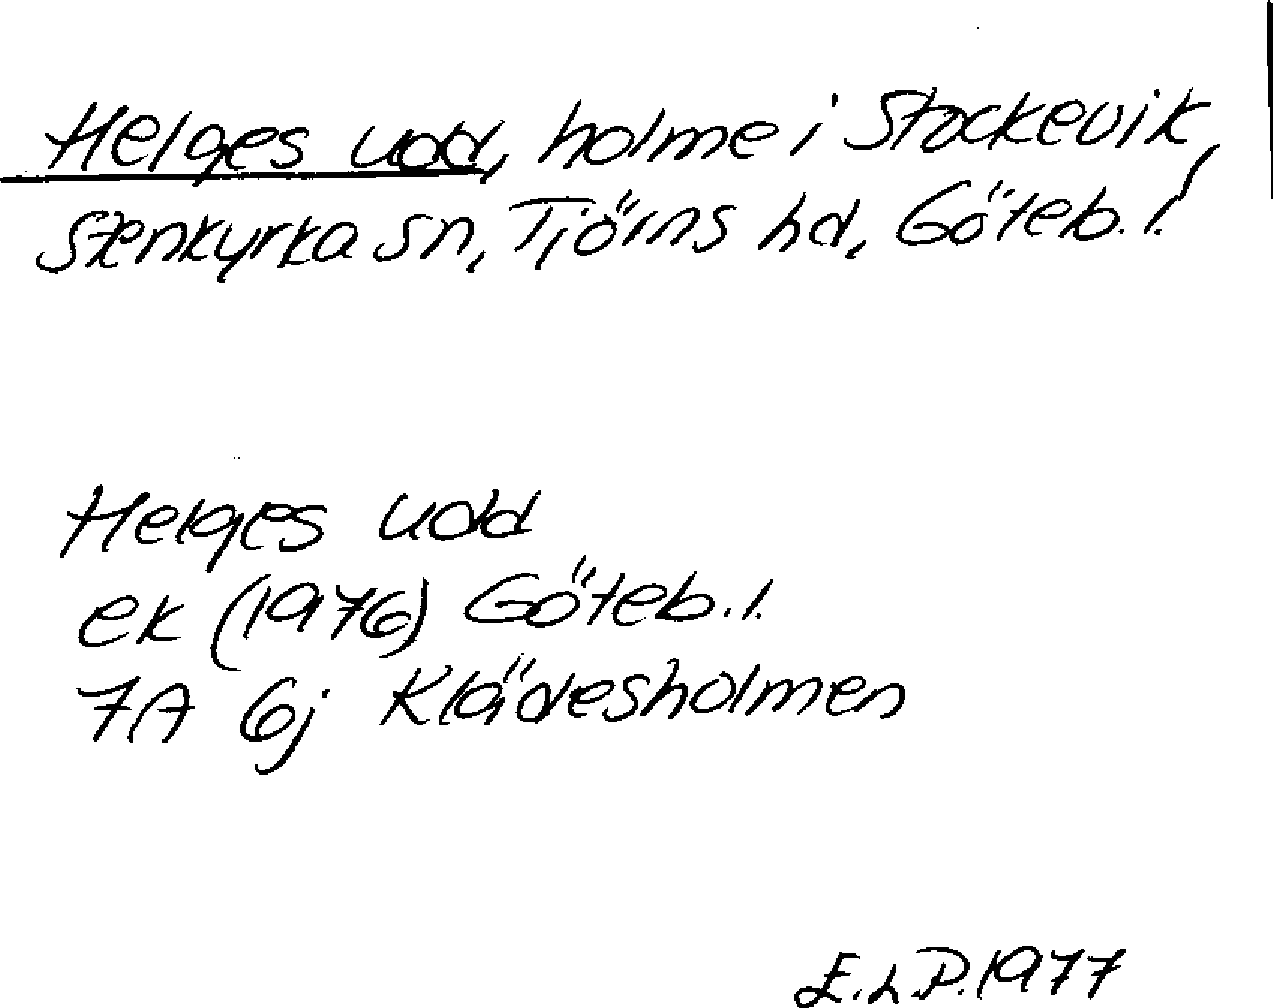 Helges udd, holme i Stockevik,
Stenkyrka sn, Tjörns hd, Göteb. l.
Helges udd
ek (1976) Göteb. l.
7A 6j Klädesholmen
E.L.P. 1977